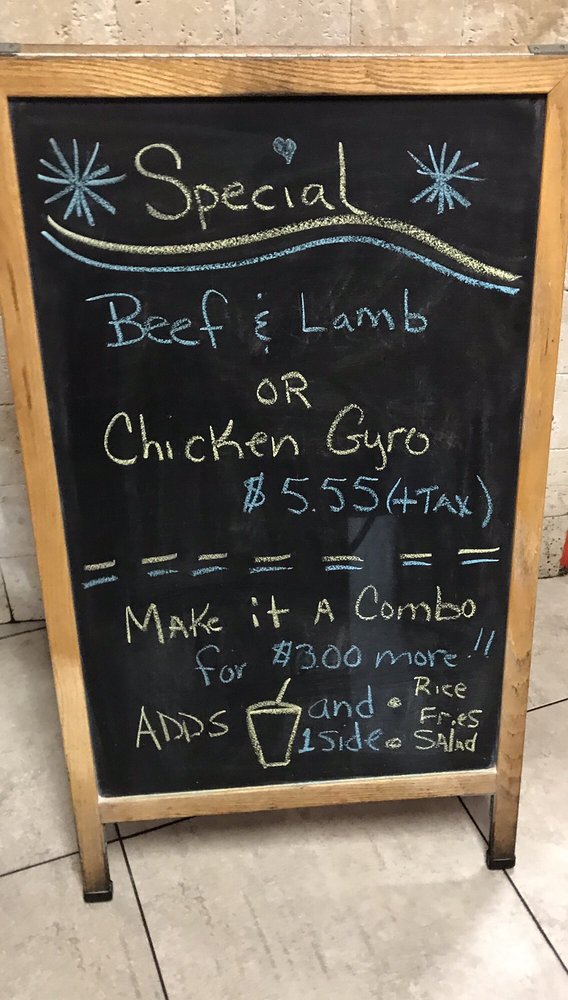 Special
Beef & Lamb
OR
Chicken Gyro
$5.55 (+TAX)
MAKE it A Combo
for $3.00 more!!
ADDS and • Rice
Fries
1 Side • SAlad